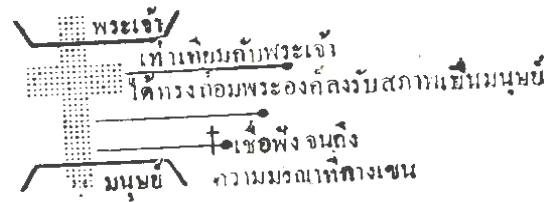 พระเจ้า
เท่าเทียมกับพระเจ้า
ได้ทรงถ่อมพระองค์ลงรับสภาพเป็นมนุษย์
เชื่อฟังจนถึง
ความมรณาที่กางเขน
มนุษย์